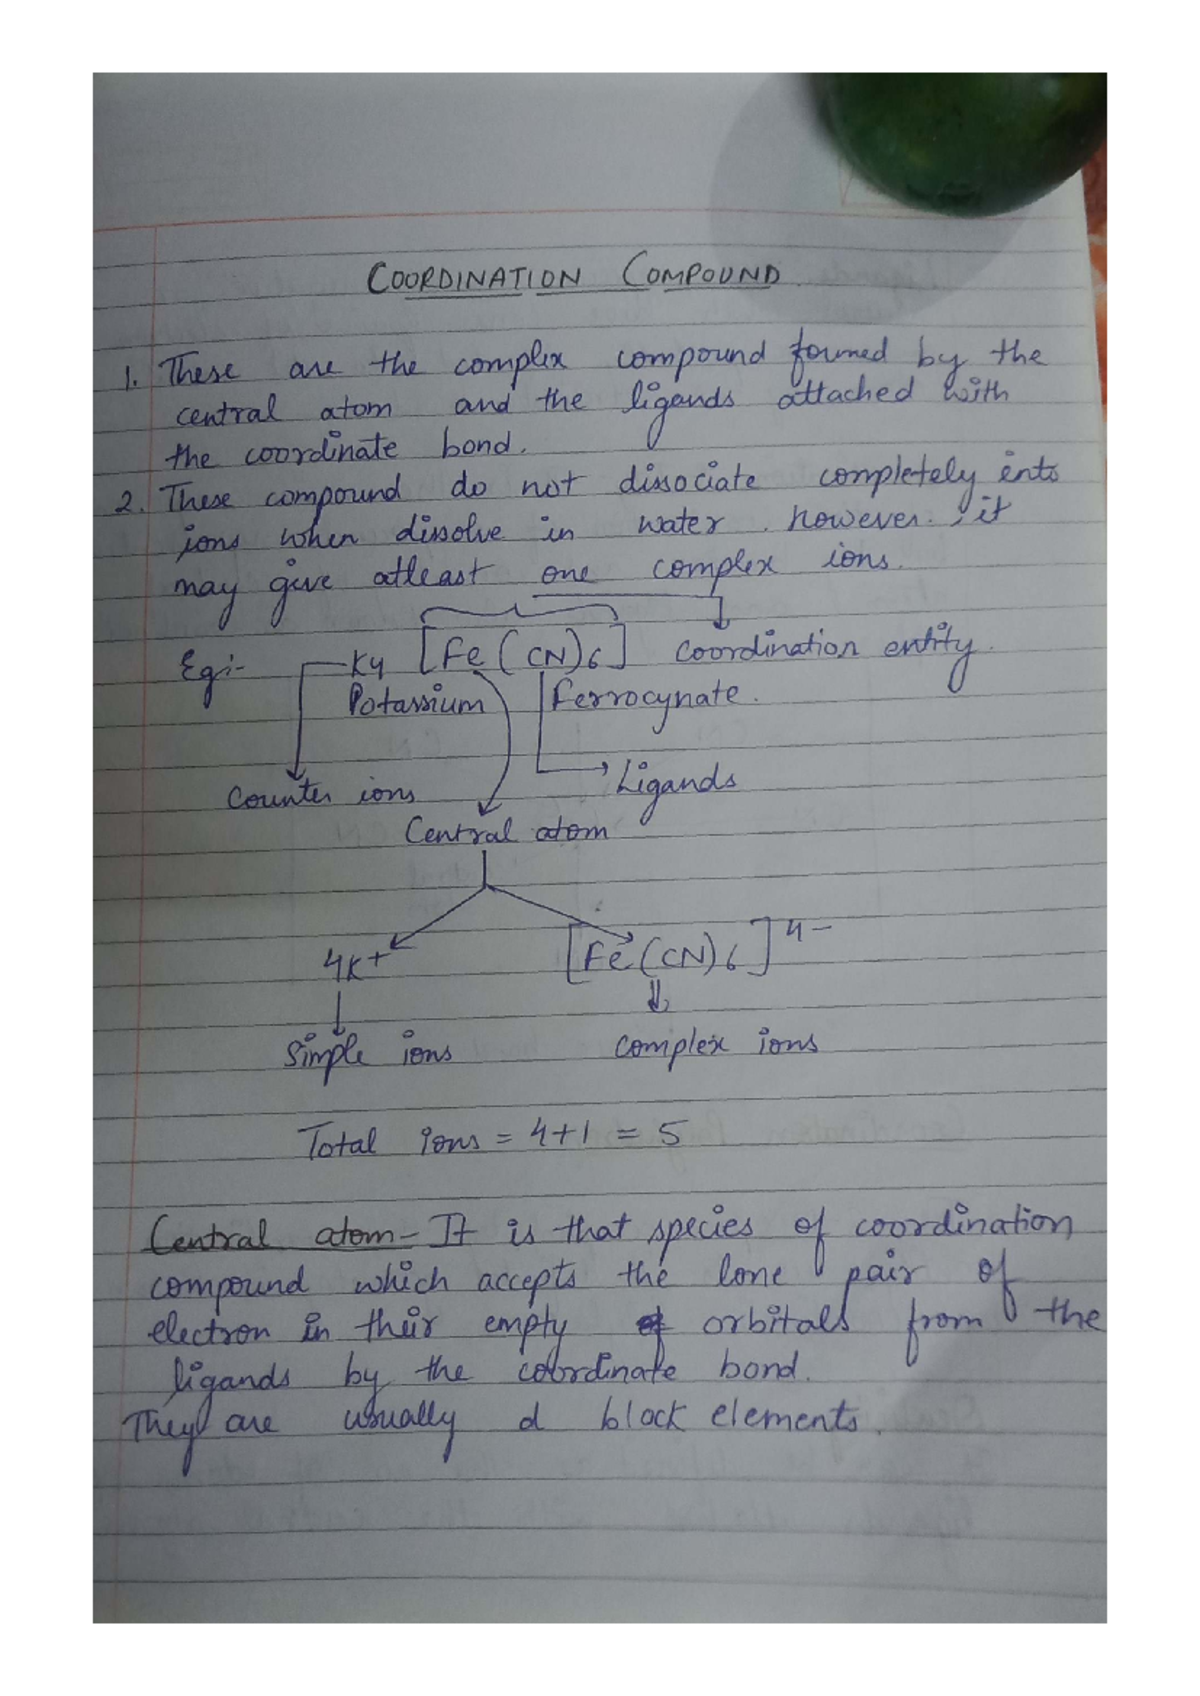 COORDINATION COMPOUND
1. These are the complex compound formed by the
central atom and the ligands attached with
the coordinate bond.
2. These compound do not dissociate completely into
ions when dissolve in water. however, it
may give atleast one complex ions.
Eg:- K4 [Fe(CN)6] Coordination entity.
Potassium Ferrocynate.
Counter ions Ligands
Central atom
4K+ [Fe(CN)6]4-
Simple ions Complex ions
Total ions = 4+1 = 5
Central atom - It is that species of coordination
compound which accepts the lone pair of
electron in their empty orbitals from the
ligands by the coordinate bond.
They are usually d block elements.